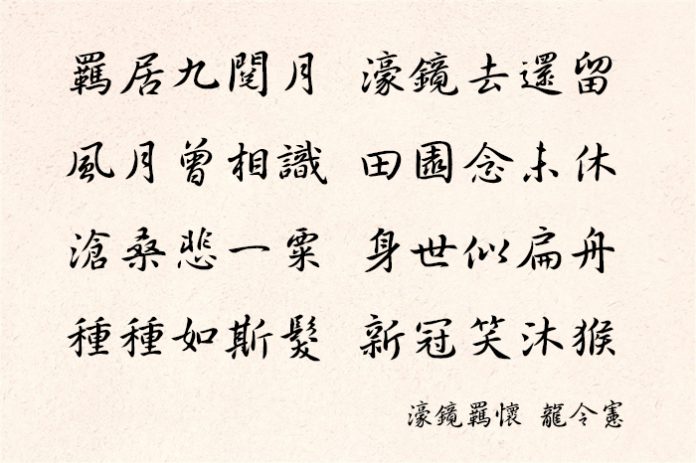 羈居九閱月 濠鏡去還留
風月曾相識 田園念未休
滄桑悲一粟 身世似扁舟
種種如斯髮 新冠笑沐猴
濠鏡羈懷 龍令憲